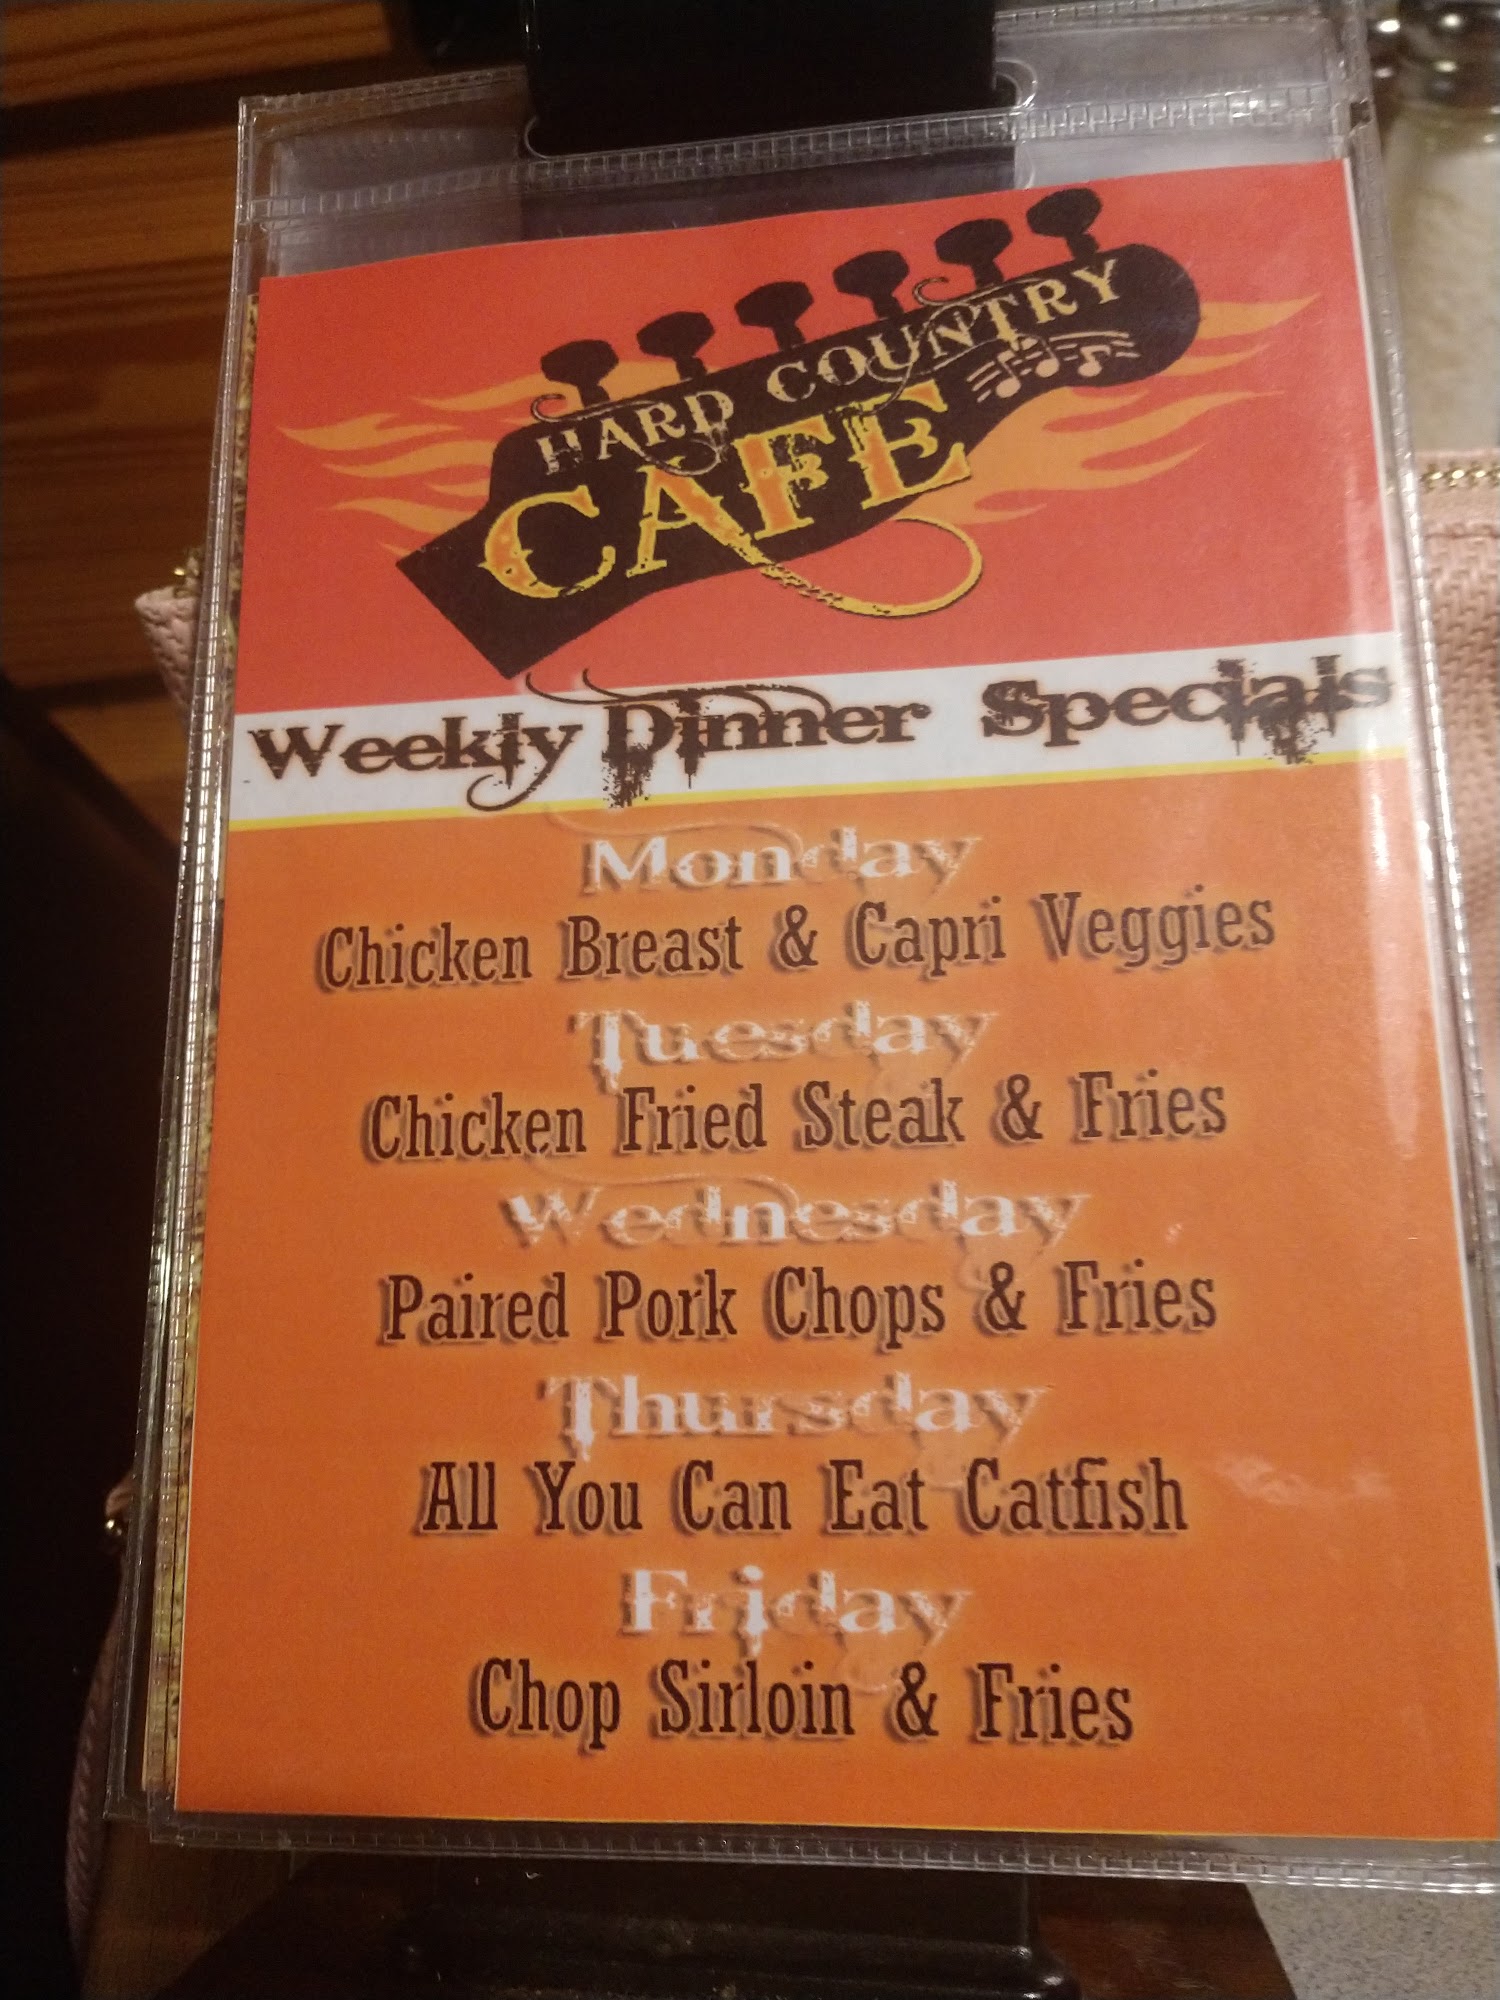 HARD COUNTRY
CAFE
Weekly Dinner Specials
Monday
Chicken Breast & Capri Veggies
Tuesday
Chicken Fried Steak & Fries
Wednesday
Paired Pork Chops & Fries
Thursday
All You Can Eat Catfish
Friday
Chop Sirloin & Fries